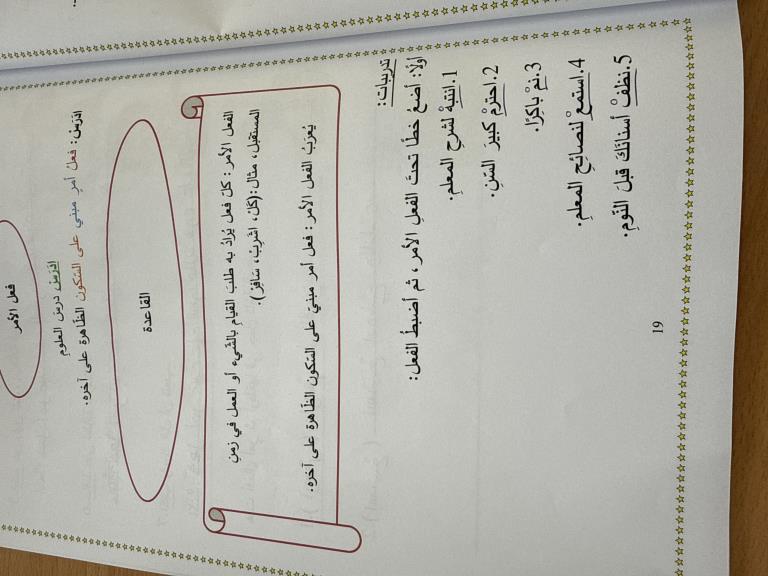 فعل الأمر
اِدرَسْ درسَ العلومِ
اِدرَسْ: فعلُ أمرٍ مبني على السّكون الظّاهرة على آخره.
القاعدة
الفعل الأمر: كلّ فعل يُرادُ به طلبَ القيامِ بالشّيء أو العمل في زمنِ
المستقبل، مثال: (كُلْ، اشْرِبْ، سَافِرْ).
يُعرَبُ الفعل الأمر: فعل أمر مبنيّ على السّكون الظّاهرة على آخره.
تدريبات:
أولًا: أضعُ خطًا تحتَ الفعلِ الأمر، ثم أضبطُ الفعل:
1. انتبِهْ لشرحِ المعلمِ.
2. احترِمْ كبيرَ السّنِ.
3. نمْ باكِرًا.
4. استمعْ لنصائحِ المعلمِ.
5. نظّفْ أسنانَكَ قبلَ النّومِ.
19